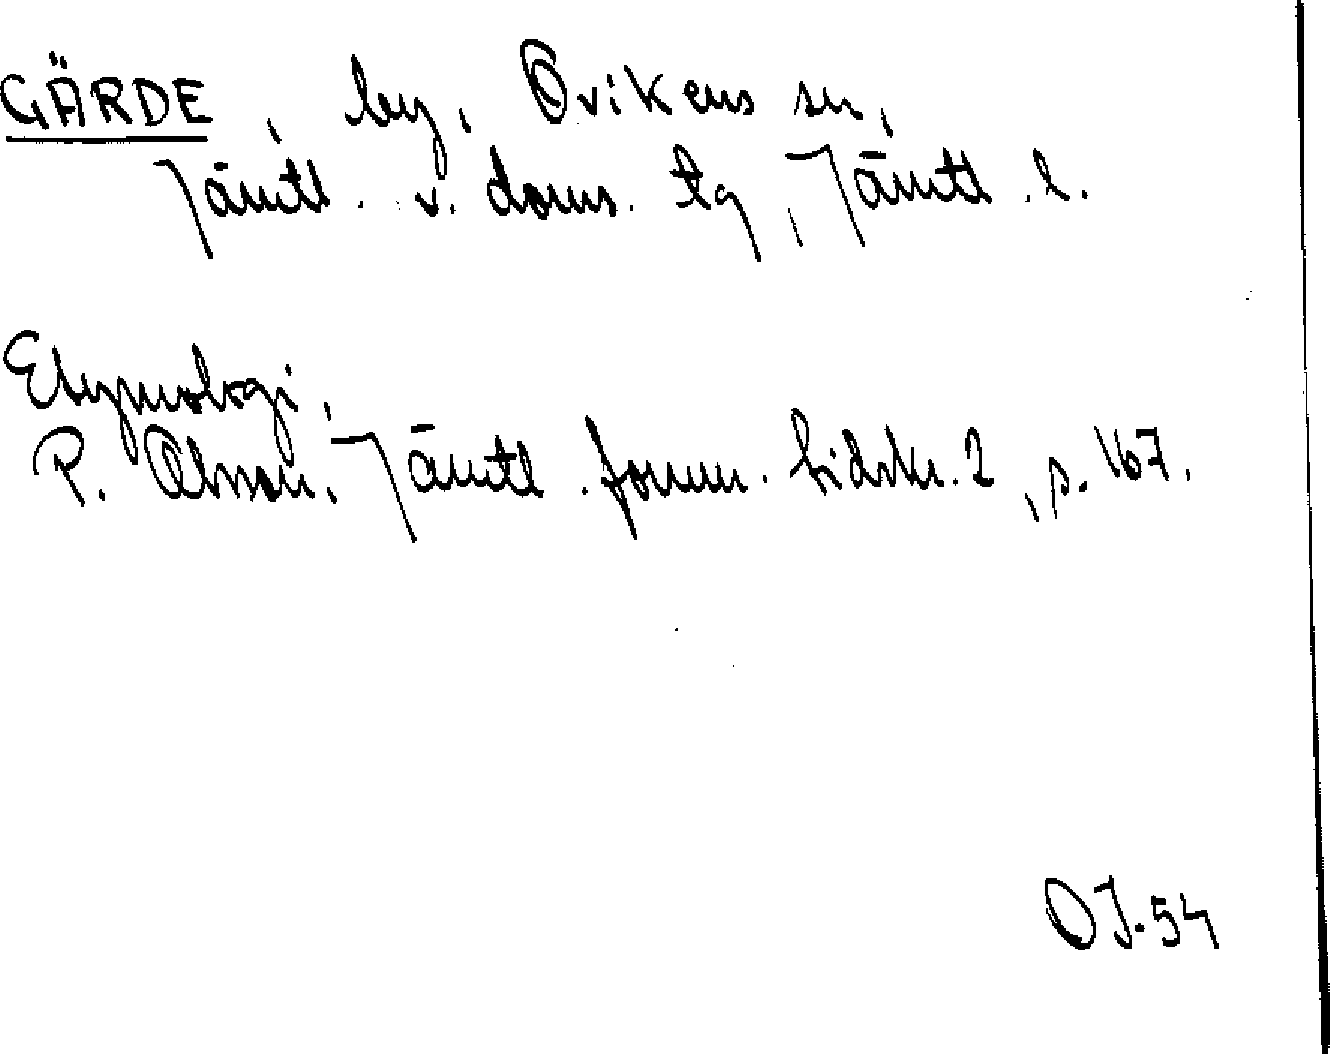 GÄRDE, by, Ovikens sn,
Jämtl. v. doms. tg, Jämtl. l.
Etymologi,
P. Olsson, Jämtl. fornm. tidskr. 2, s. 167.
OJ.54